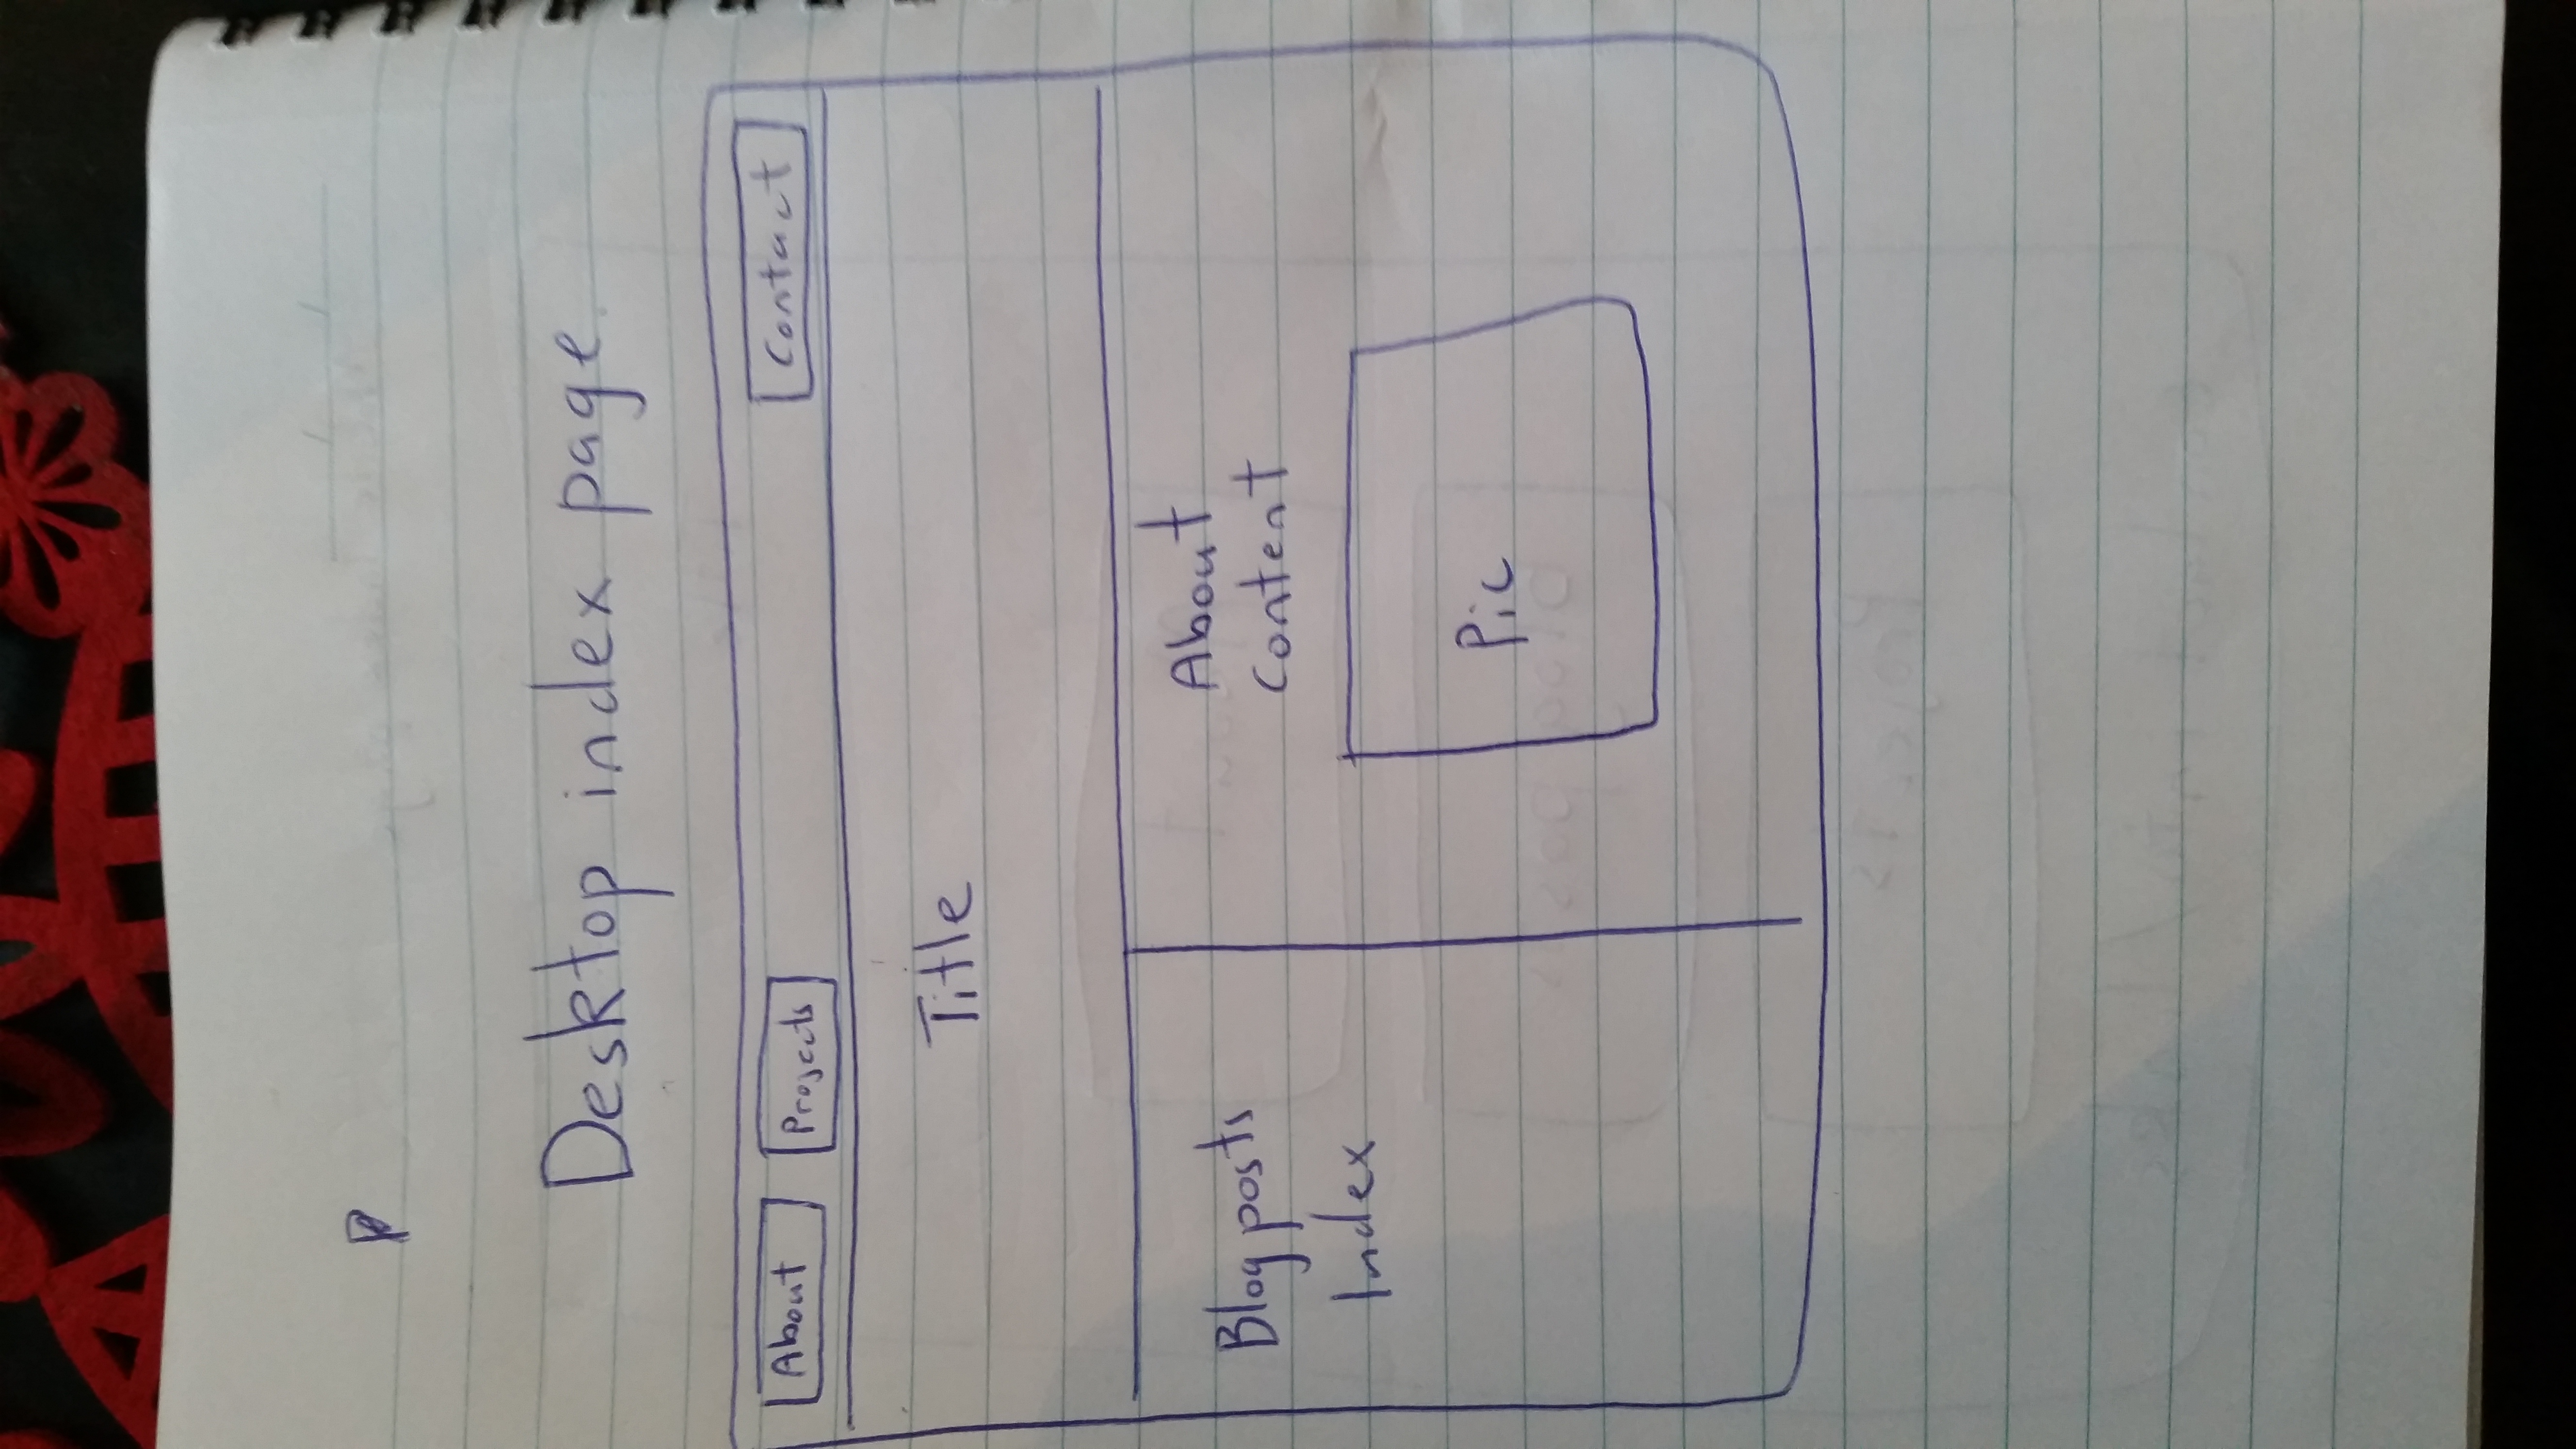 Desktop index page
About Projects Contact
Title
Blog posts
Index
About
Content
Pic